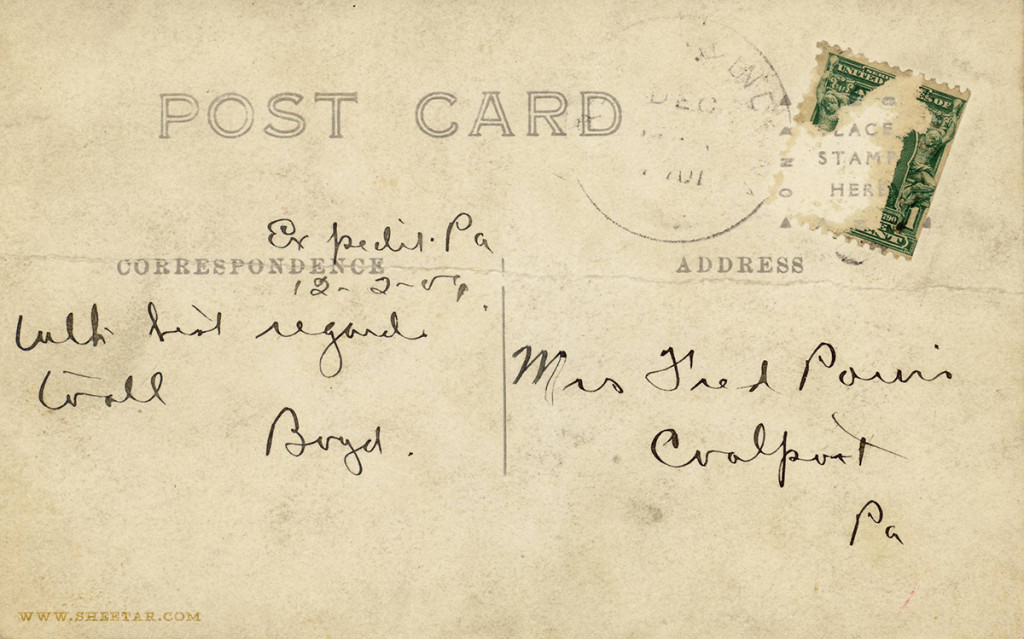 POST CARD
DEC
PLACE
STAMP
HERE
UNITED STATES OF
1
CENT
Expedit. Pa
CORRESPONDENCE
ADDRESS
12-2-07.
With best regards
to all
Boyd.
Mrs Fred Powis
Coalport
Pa
WWW.SHEETAR.COM